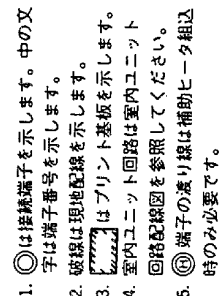 1. ◎は接続端子を示します。中の文
字は端子番号を示します。
2. 破線は現地配線を示します。
3. はプリント基板を示します。
4. 室内ユニット回路は室内ユニット
回路配線図を参照してください。
5. Ⓗ端子の渡り線は補助ヒータ組込
時のみ必要です。